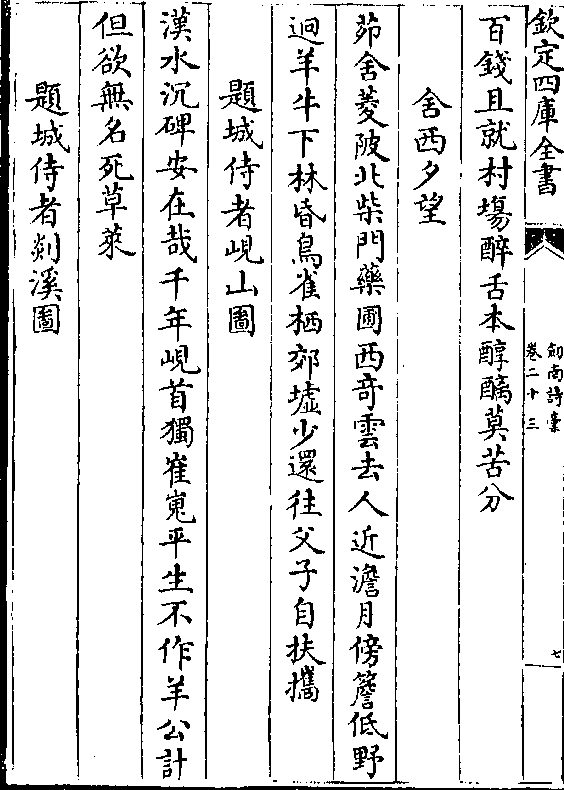 欽定四庫全書
劒南詩藁
卷二十三
七
百錢且就村塲醉舌本醇醨莫苦分
舍西夕望
茆舍菱陂北柴門藥圃西竒雲去人近澹月傍簷低野
迥羊牛下林昏鳥雀栖郊墟少還往父子自扶攜
題城侍者峴山圖
漢水沉碑安在哉千年峴首獨崔嵬平生不作羊公計
但欲無名死草萊
題城侍者剡溪圖